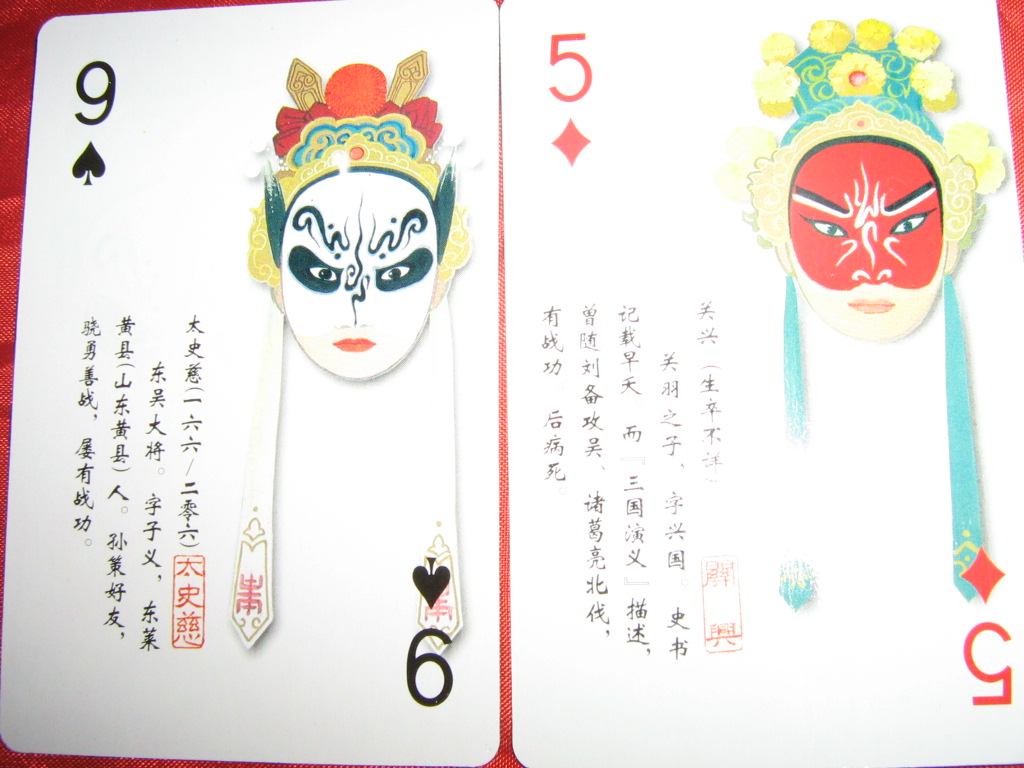 9
太史慈(一六六/二零六)
东吴大将。字子义,东莱
黄县(山东黄县)人。孙策好友,
骁勇善战,屡有战功。
太史慈
9
5
关兴(生卒不详)
关羽之子,字兴国。史书
记载早夭 而『三国演义』描述,
曾随刘备攻吴、诸葛亮北伐,
有战功 后病死。
關興
5